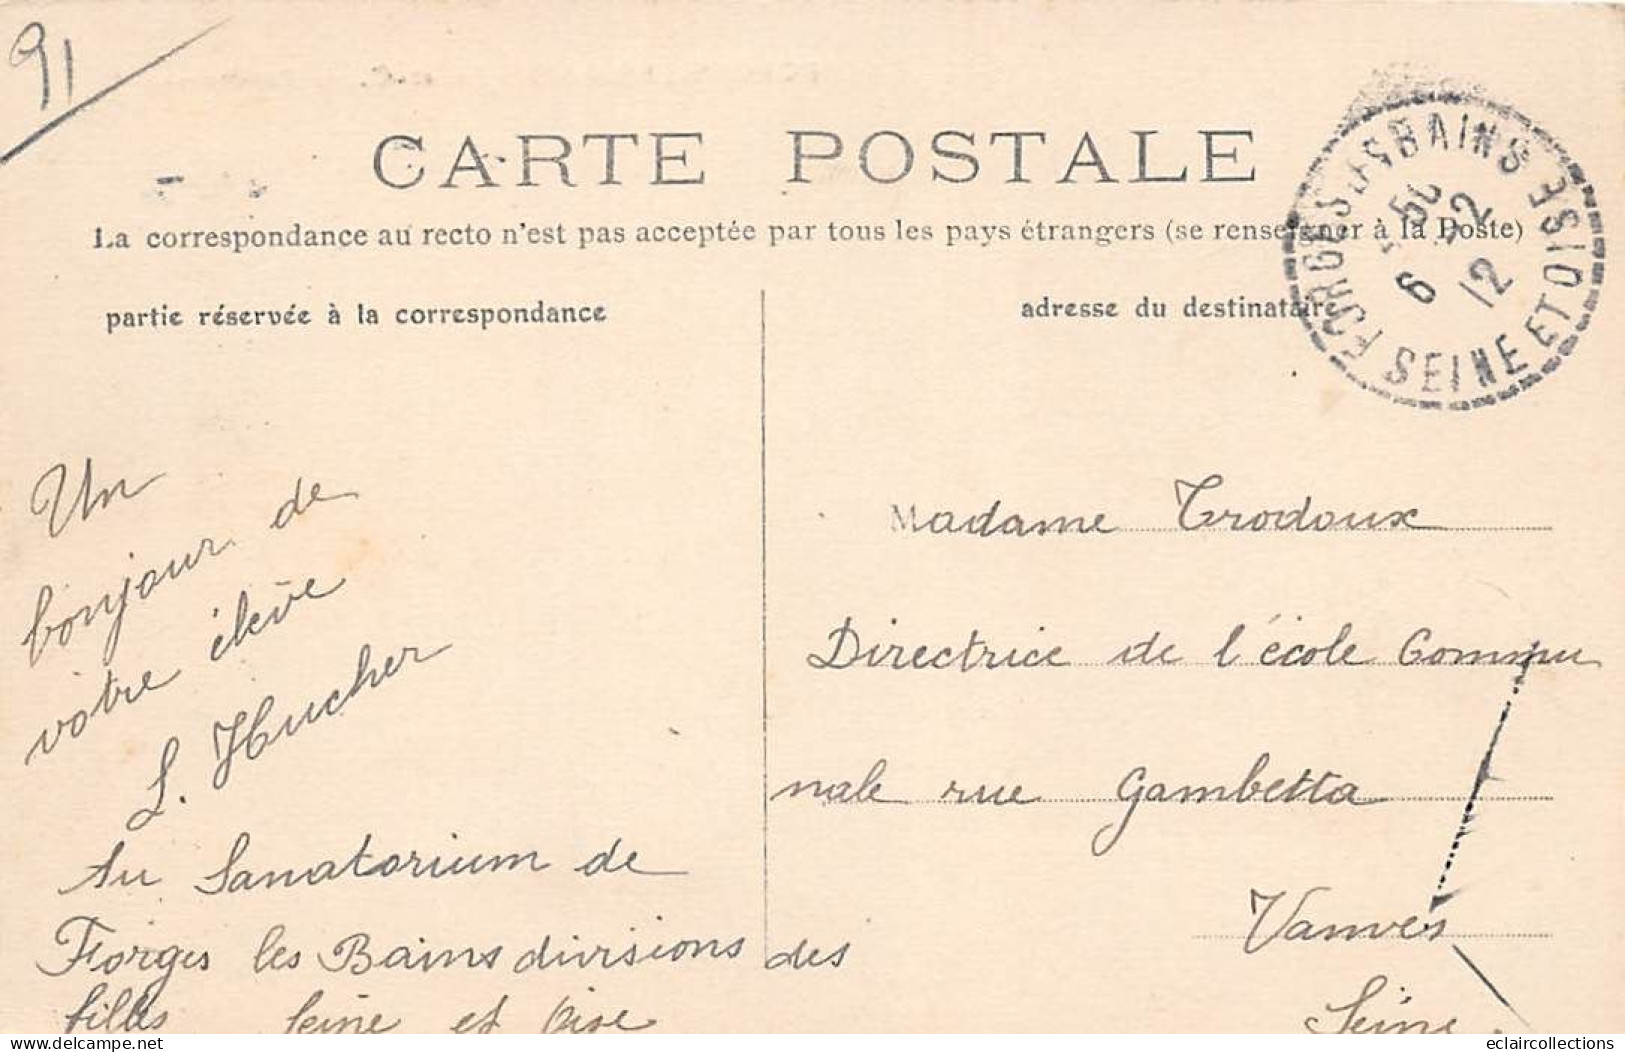 91
CARTE POSTALE
La correspondance au recto n'est pas acceptée par tous les pays étrangers (se renseigner à la Poste)
partie réservée à la correspondance
adresse du destinataire
FORGES LES BAINS SEINE ET OISE
6 12
12
Un
bonjour de
votre élève
L. Hucher
Au Sanatorium de
Forges les Bains divisions des
filles Seine et Oise
Madame Trodoux
Directrice de l'école Commu
nale rue Gambetta
Vanves
Seine.
delcampe.net
eclaircollections